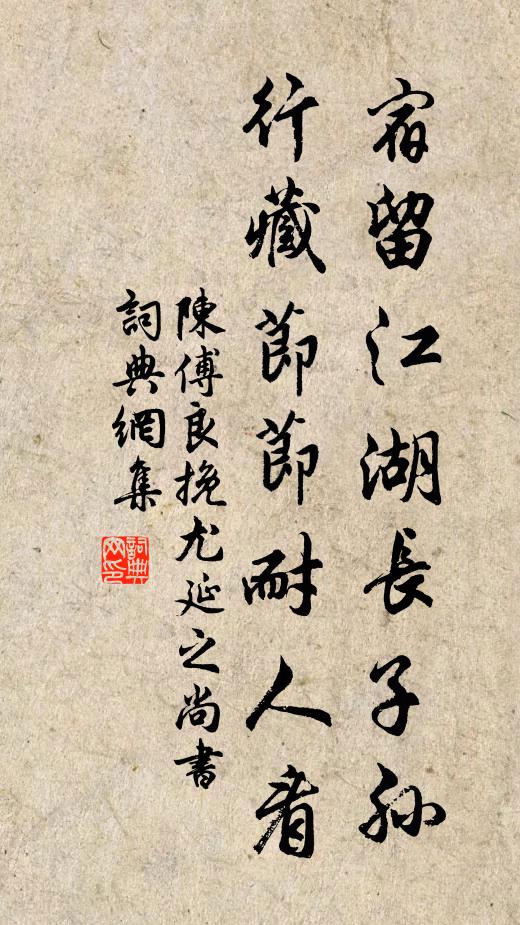 宿留江湖長子孫
行藏節節耐人看
陳傅良挽尤延之尚書
詞典網集
詞典
网印